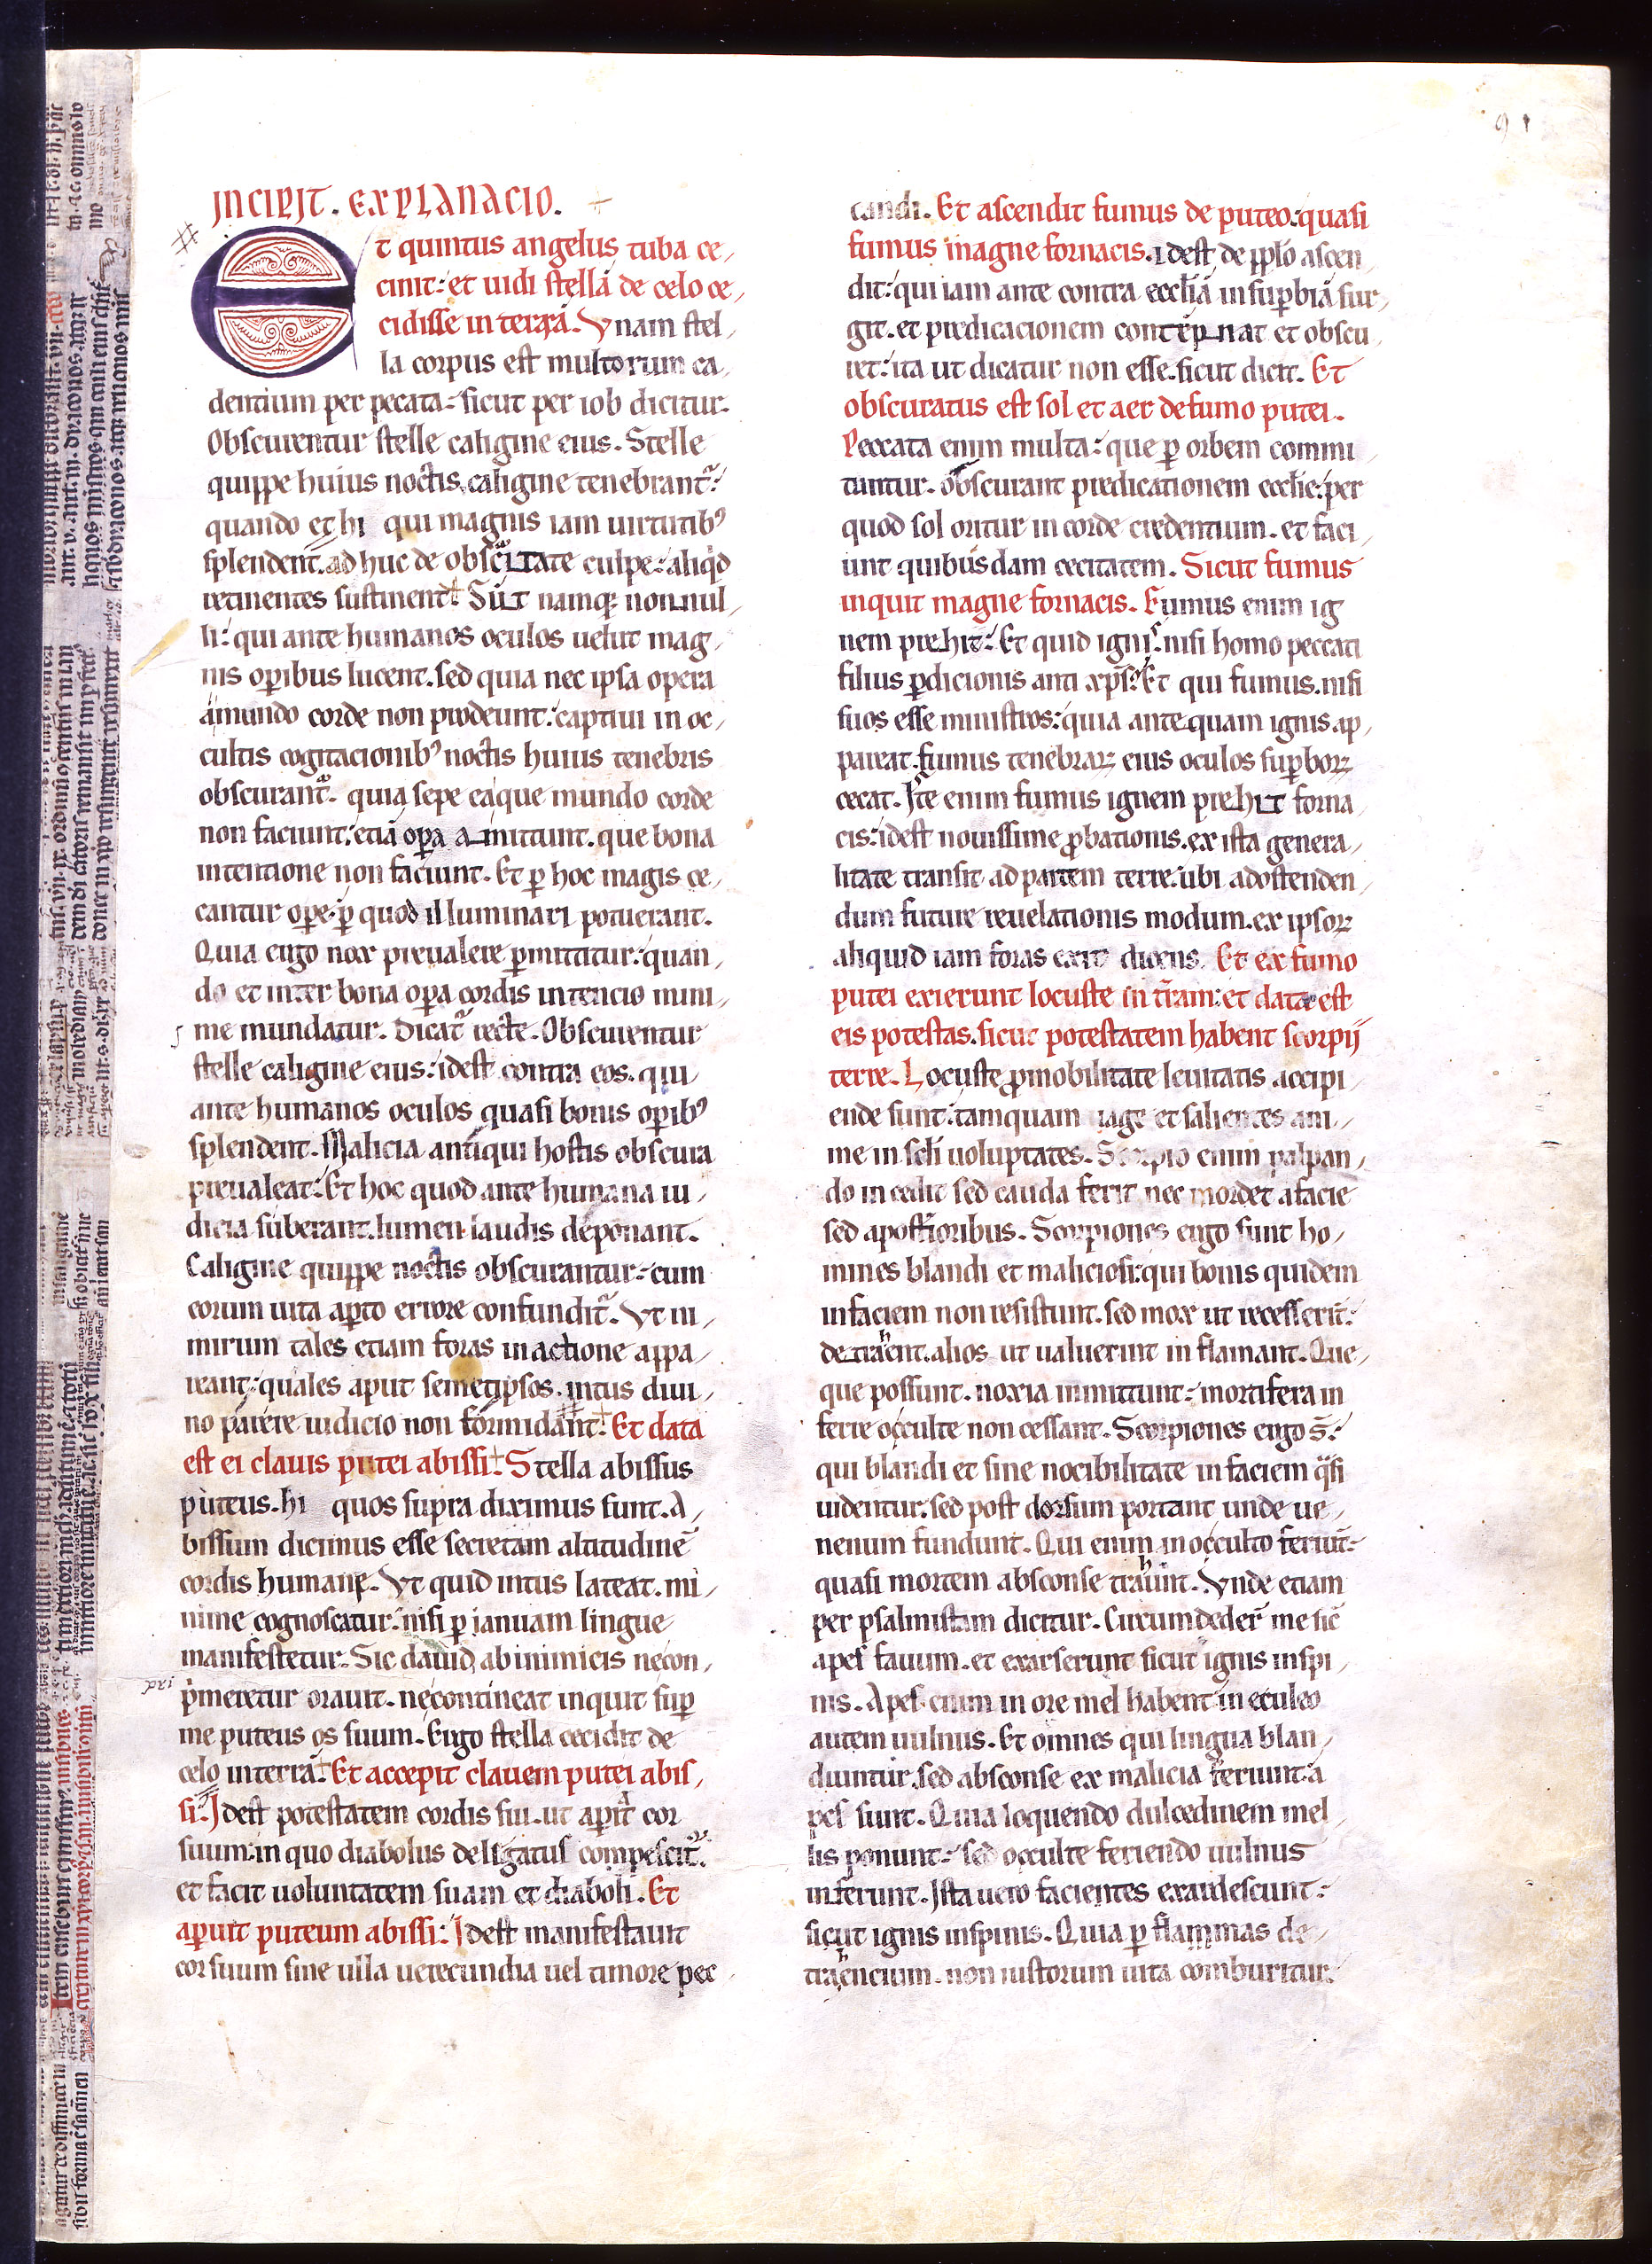 91
INCIPIT. EXPLANACIO.
Et quintus angelus tuba ce,
cinit: et uidi stellā de celo ce,
cidisse in terrā. Vnam stel,
la corpus est multorum ca,
dentium per pecata: sicut per iob dicitur.
Obscurentur stelle caligine eius. Stelle
quippe huius noctis caligine tenebrant᷑:
quando et hi qui magnis iam uirtutibꝰ
splendent. ad huc de obscuritate culpe: aliqͥd
retinentes sustinent. Sūt namq; non nul,
li: qui ante humanos oculos uelut mag,
nis oꝑibus lucent. sed quia nec ipsa opera
a mundo corde non prodeunt: captiui in oc,
cultis cogitacionibꝰ noctis huius tenebris
obscurant᷑. quia sepe ea que mundo corde
non faciunt: etiā oꝑa amittunt. que bona
intentione non faciunt. Et ꝑ hoc magis ce,
cantur oꝑe. ꝑ quod illuminari potuerant.
Quia ergo nox preualere ꝑmittitur: quan,
do et inter bona oꝑa cordis intencio mini,
me mundatur. Dicat᷑ recte. Obscurentur
stelle caligine eius: idest contra eos. qui
ante humanos oculos quasi bonis oꝑibꝰ
splendent. Malicia antiqui hostis obscura
preualeat: Et hoc quod ante humana iu,
dicia suberant. lumen laudis deponant.
Caligine quippe noctis obscurantur: cum
eorum uita aꝑto errore confundit᷑. Vt ni,
mirum tales etiam foras in actione appa,
reant: quales aput semetipsos. intus diui,
no parere iudicio non formidant. Et data
est ei clauis putei abissi. Stella abissus
puteus. hi quos supra diximus sunt. A,
bissum dicimus esse secretam altitudinē
cordis humane. Vt quid intus lateat. mi,
nime cognoscatur: nisi ꝑ ianuam lingue
manifestetur. Sic dauid ab inimicis ne con,
pri
p̍meretur orauit. ne contineat inquit suꝑ
me puteus os suum. Ergo stella cecidit de
celo in terrā. Et accepit clauem putei abis,
si. Idest potestatem cordis sui. ut aperit cor
suum: in quo diabolus deligatus compescit᷑.
et facit uoluntatem suam et diaboli. Et
aꝑuit puteum abissi: Idest manifestauit
cor suum sine ulla uerecundia uel timore pec
candi. Et ascendit fumus de puteo: quasi
fumus magne fornacis. Idest de pplō ascen,
dit: qui iam ante contra ecclīā in suꝑbiā sur,
git. et predicacionem contepnat et obscu,
ret: ita ut dicatur non esse. sicut dicit. Et
obscuratus est sol et aer de fumo putei.
Peccata enim multa: que ꝑ orbem commi,
tuntur. obscurant predicationem ecclīe: per
quod sol oritur in corde credentium. et faci,
unt quibusdam cecitatem. Sicut fumus
inquit magne fornacis. Fumus enim ig
nem prehit: Et quid ignis. nisi homo peccati
filius ꝑdicionis anti xp̄s: Et qui fumus. nisi
suos esse ministros: quia ante quam ignis ap,
pareat. fumus tenebraꝝ eius oculos suꝑboꝝ
cecat. Iste enim fumus ignem prehit forna,
cis: idest nouissime ꝓbationis. ex ista genera,
litate transit ad partem terre. ubi ad ostenden,
dum future reuelationis modum. ex ipsoꝝ
aliquid iam foras exit dicens. Et ex fumo
putei exierunt locuste in tr̄am: et data est
eis potestas. sicut potestatem habent scorpij
terre. Locuste ꝓ mobilitate leuitatis accipi,
ende sunt: tamquam uage et salientes ani,
me in scl̄i uoluptates. Scorpio enim palpan,
do incedit sed cauda ferit nec mordet a facie
sed a post̄ioribus. Scorpiones ergo sunt ho,
mines blandi et maliciosi: qui bonis quidem
in faciem non resistunt. sed mox ut recesserīt:
detrahent. alios ut ualuerint inflamant. Que,
que possunt. noxia inmittunt: mortifera in
ferre occulte non cessant. Scorpiones ergo s̄:
qui blandi et sine nocibilitate in faciem q̄si
uidentur. sed post dorsum portant unde ue,
nenum fundunt. Qui enim in occulto feriūt:
quasi mortem absconse trahunt. Vnde etiam
per psalmistam dicitur. Circumdeder̄ me sic̄
apes fauum. et exarserunt sicut ignis in spi,
nis. Apes enim in ore mel habent in eculeo
autem uulnus. Et omnes qui lingua blan,
diuntur. sed absconse ex malicia feriunt a
pes sunt. Quia loquendo dulcedinem mel,
lis ponunt: sed occulte feriendo uulnus
inferunt. Ista uero facientes exardescunt:
sicut ignis in spinis. Quia ꝑ flammas de,
trahencium. non iustorum uita comburitur.